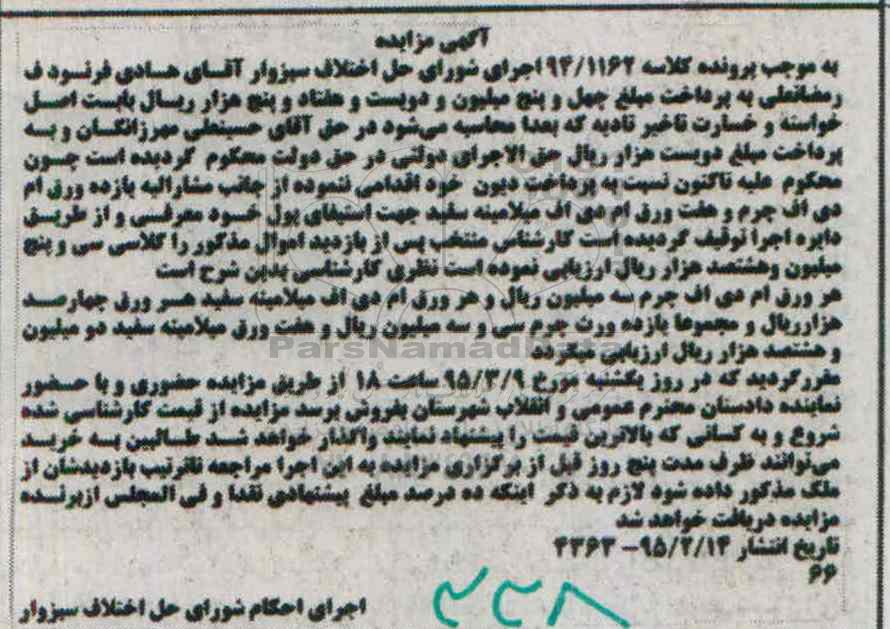 آگهی مزایده
به موجب پرونده کلاسه ۹۴/۱۱۶۲ اجرای شورای حل اختلاف سبزوار آقـای هـادی فرنـود ف
رمضانعلی به پرداخت مبلغ چهل و پنج میلیون و دویست و هفتاد و پنج هزار ریـال بابـت اصـل
خواسته و خسارت تاخیر تادیه که بعدا محاسبه می‌شود در حق آقای حسینعلی مهرزانگـان و بـه
پرداخت مبلغ دویست هزار ریال حق الاجرای دولتی در حق دولت محکوم گردیده است چـون
محکوم علیه تاکنون نسبت به پرداخت دیون خود اقدامی ننموده از جانب مشارالیه یازده ورق ام
دی اف چرم و هفت ورق ام دی اف میلامینه سفید جهت استیفای پول خـود معرفـی و از طریـق
دایره اجرا توقیف گردیده است کارشناس منتخب پس از بازدید اموال مذکور را کلاسی سی و پنج
میلیون وهشتصد هزار ریال ارزیابی نموده است نظری کارشناسی بدین شرح است
هر ورق ام دی اف چرم سه میلیون ریال و هر ورق ام دی اف میلامینه سفید هـر ورق چهارصـد
هزارریال و مجموعا یازده ورث چرم سی و سه میلیون ریال و هفت ورق میلامینه سفید دو میلیون
و هشتصد هزار ریال ارزیابی میگردد
مقررگردید که در روز یکشنبه مورخ ۹۵/۳/۹ ساعت ۱۸ از طریق مزایده حضوری و با حـضور
نماینده دادستان محترم عمومی و انقلاب شهرستان بفروش برسد مزایده از قیمت کارشناسی شده
شروع و به کسانی که بالاترین قیمت را پیشنهاد نمایند واگذار خواهد شـد طـالبین بـه خریـد
می‌توانند ظرف مدت پنج روز قبل از برگزاری مزایده به این اجرا مراجعه تاترتیب بازدیدشان از
ملک مذکور داده شود لازم به ذکر اینکه ده درصد مبلغ پیشنهادی نقدا و فی المجلس ازبرنـده
مزایده دریافت خواهد شد
تاریخ انتشار ۹۵/۲/۱۴- ۴۳۶۳
۶۶
اجرای احکام شورای حل اختلاف سبزوار
۲۳۸
ParsNamadData